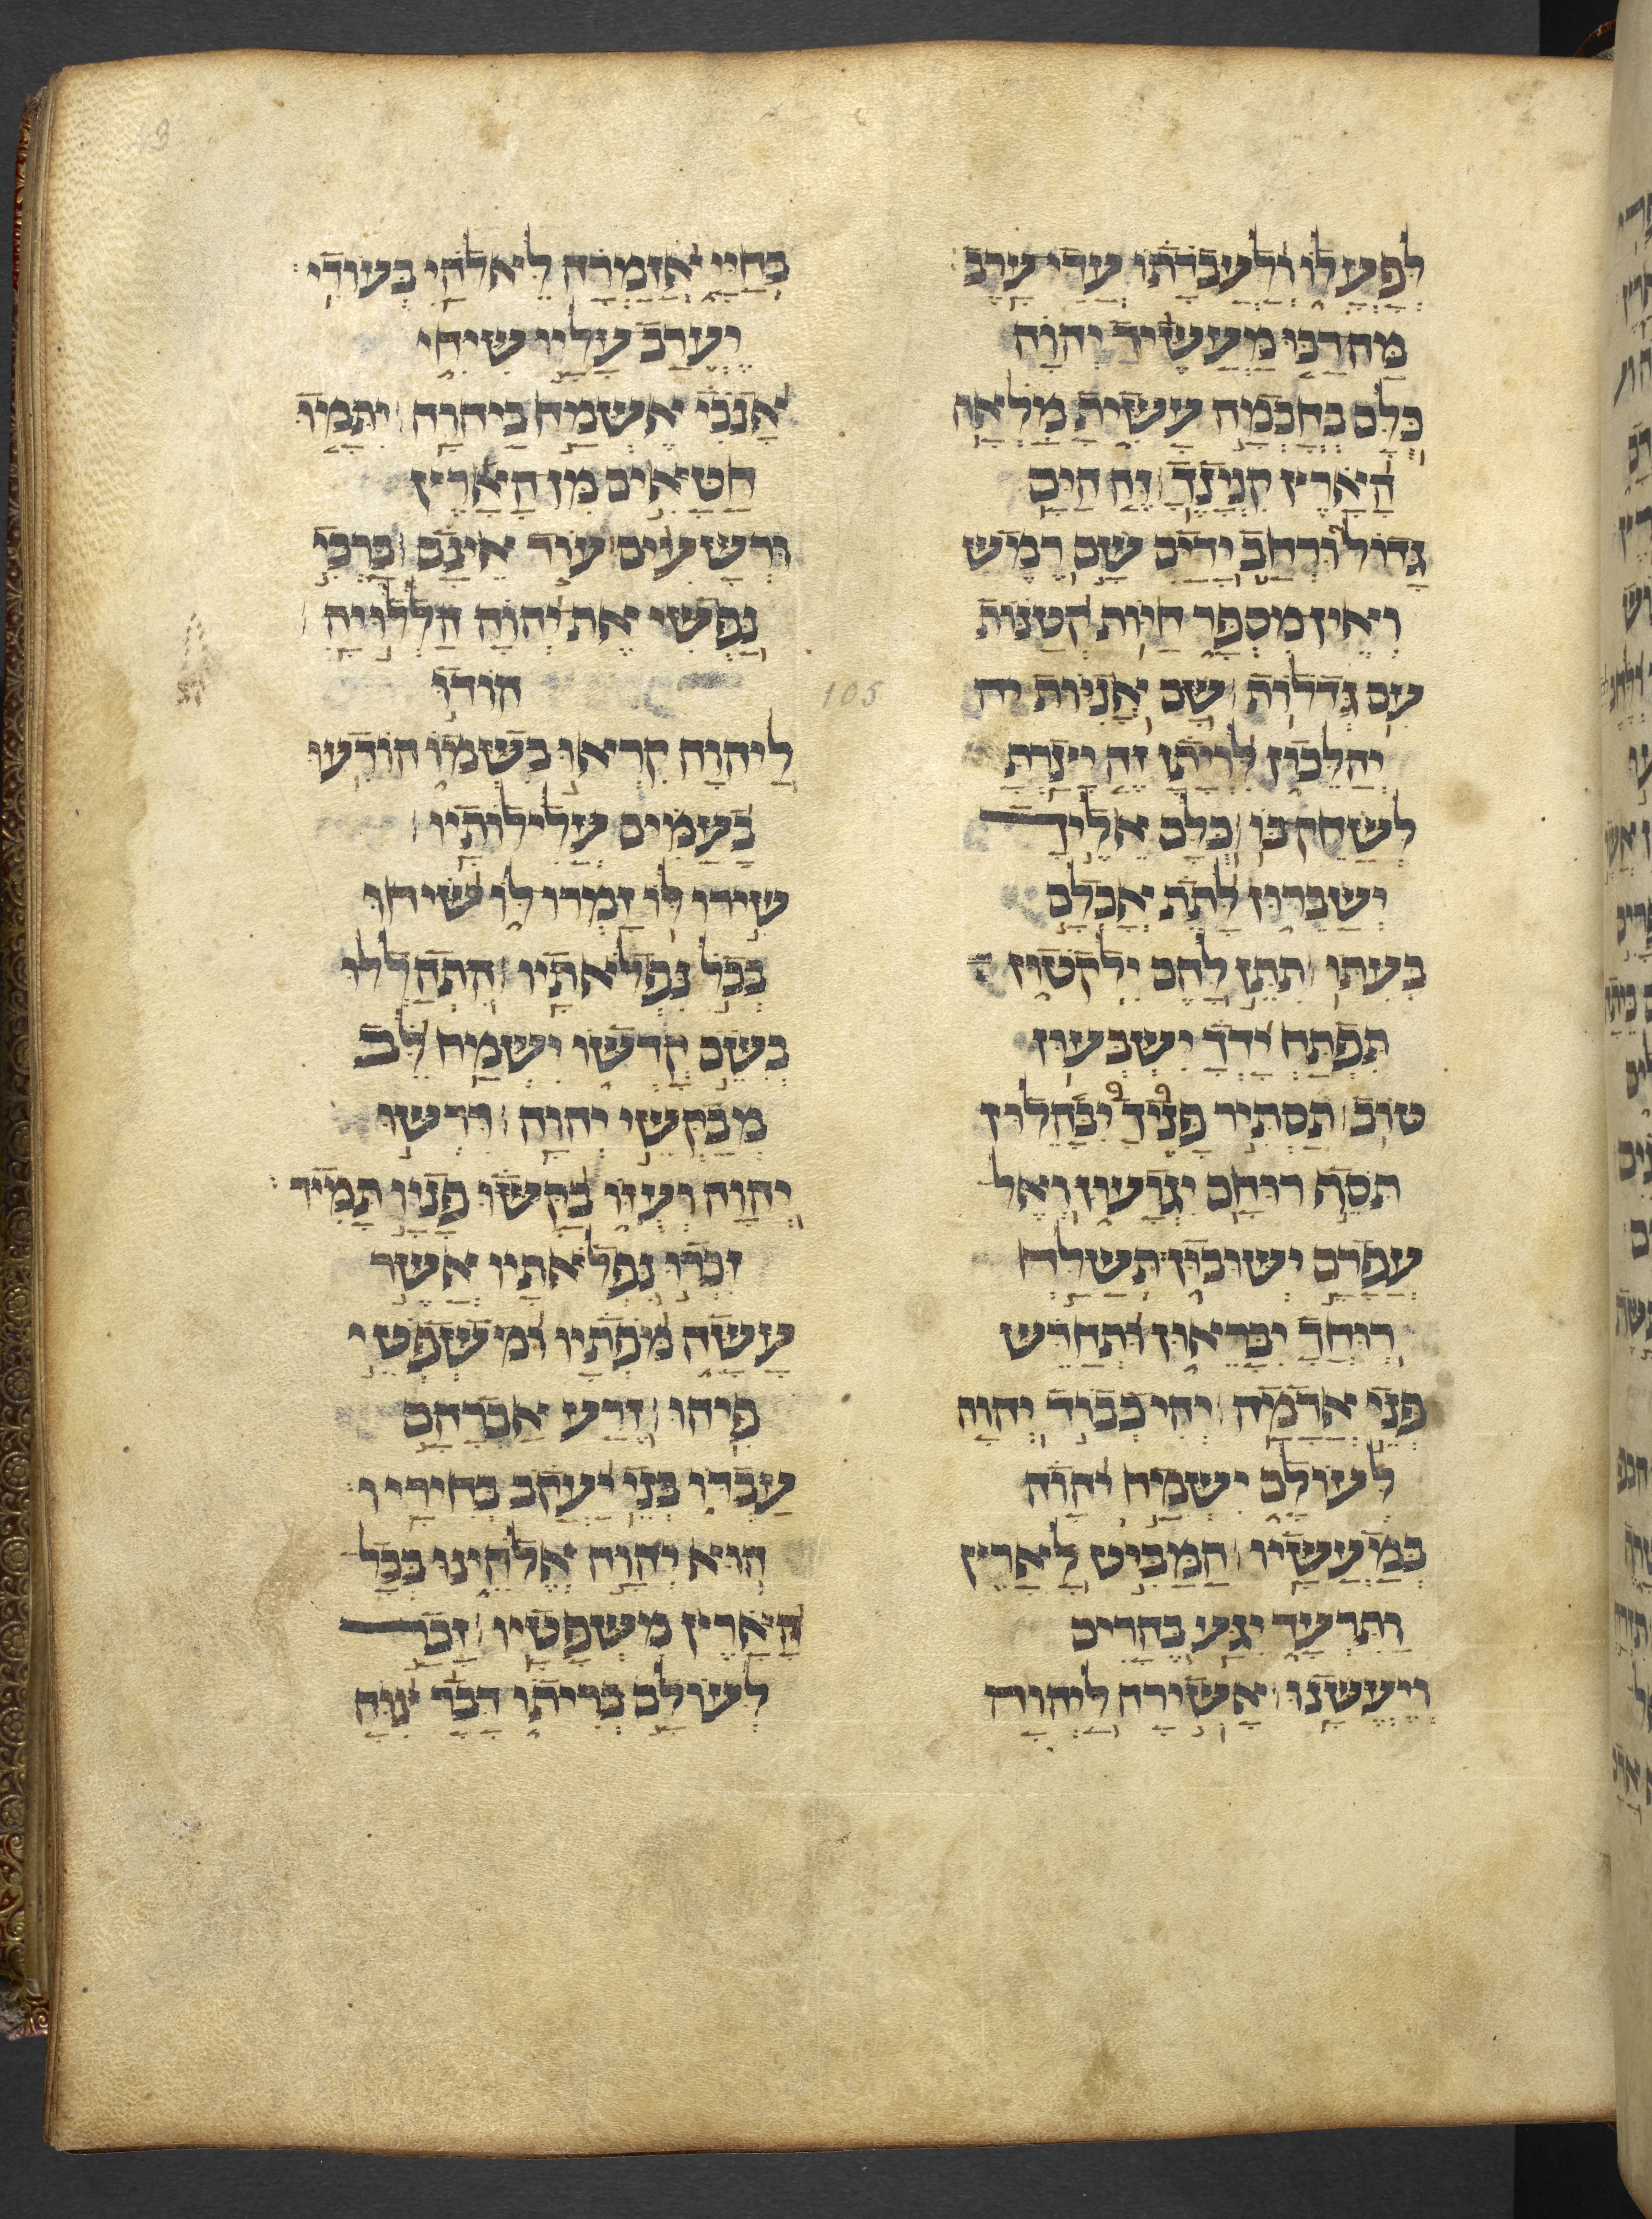 לפעלו ולעבדתו עדי ערב
מה רבו מעשיך יהוה
כלם בחכמה עשית מלאה
הארץ קנינך זה הים
גדול ורחב ידים שם רמש
ואין מספר חיות קטנות
עם גדלות שם אניות יה
יהלכון לויתן זה יצרת
לשחק בו כלם אליך
ישברון לתת אכלם
בעתו תתן להם ילקטון
תפתח ידך ישבעון
טוב תסתיר פניך יבהלון
תסף רוחם יגועון ואל
עפרם ישובון׃ תשלח
רוחך יבראון ותחדש
פני אדמה יהי כבוד יהוה
לעולם ישמח יהוה
במעשיו המביט לארץ
ותרעד יגע בהרים
ויעשנו אשירה ליהוה
בחיי אזמרה לאלהי בעודי׃
יערב עליו שיחי
אנכי אשמח ביהוה יתמו
חטאים מן הארץ
ורשעים עוד אינם ברכי
נפשי את יהוה הללויה
105 הודו
ליהוה קראו בשמו הודיעו
בעמים עלילותיו
שירו לו זמרו לו שיחו
בכל נפלאתיו התהללו
בשם קדשו ישמח לב
מבקשי יהוה דרשו
יהוה ועזו בקשו פניו תמיד׃
זכרו נפלאתיו אשר
עשה מפתיו ומשפטי
פיהו זרע אברהם
עבדו בני יעקב בחיריו׃
הוא יהוה אלהינו בכל
הארץ משפטיו זכר
לעולם בריתו דבר צוה